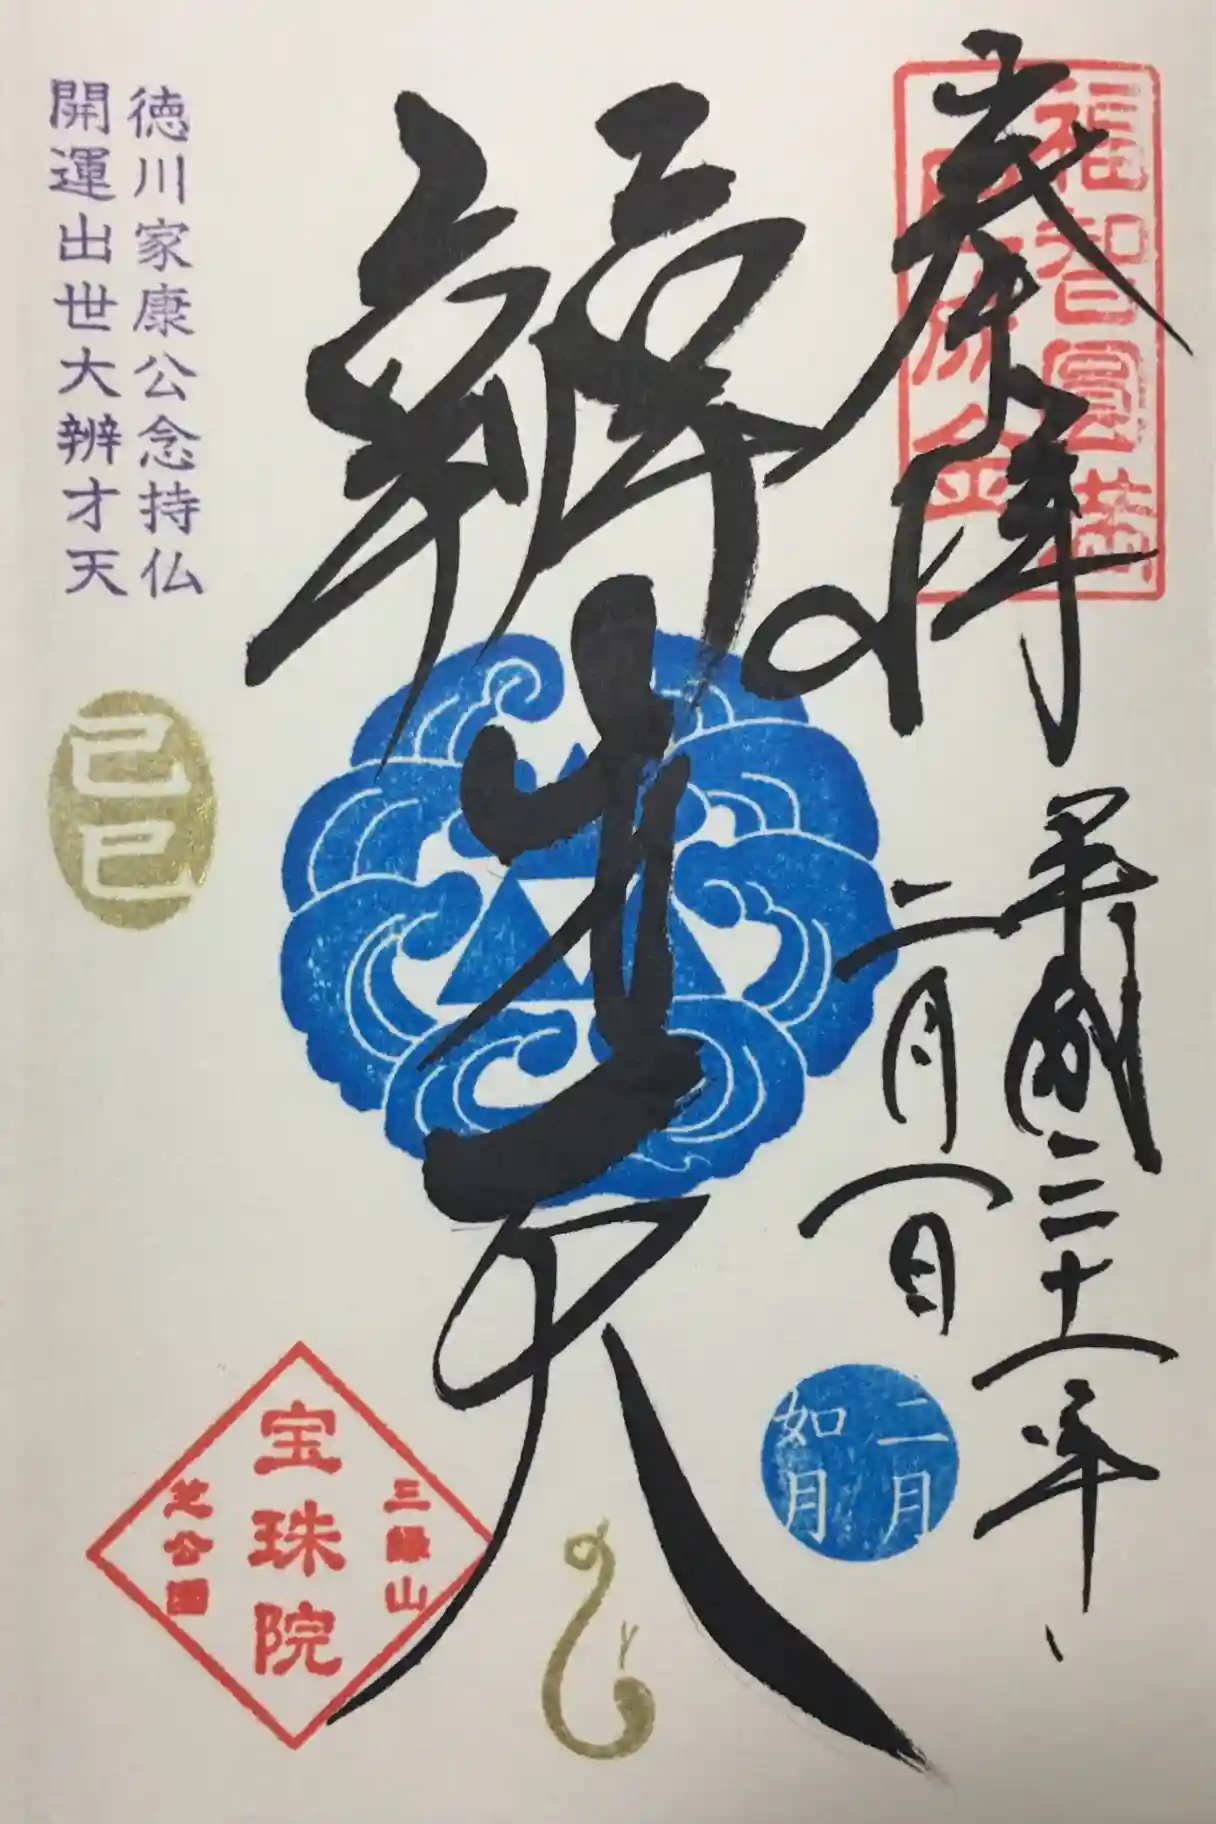 奉拝
福智圓満
平成三十一年
二月一日
二月
如月
辨才天
徳川家康公念持仏
開運出世大辨才天
己巳
三縁山
宝珠院
芝公園